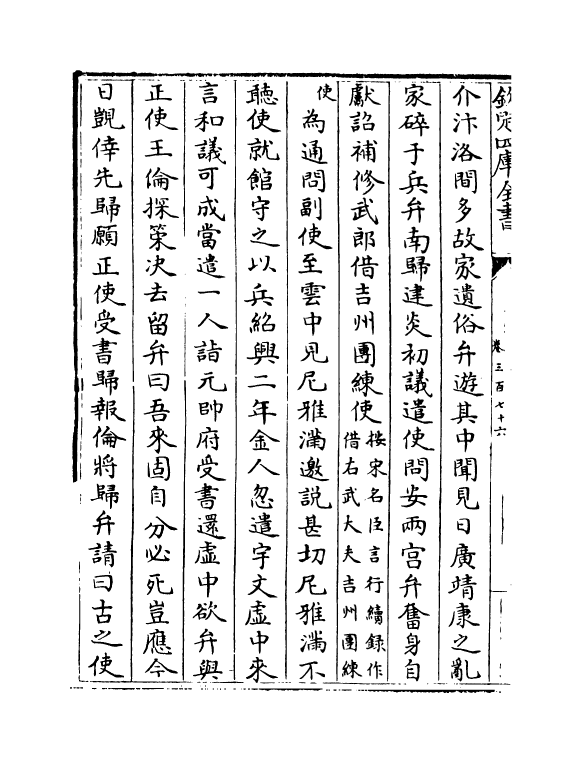 欽定四庫全書
卷三百七十六
介汴洛間多故家遺俗弁遊其中聞見日廣靖康之亂
家碎于兵弁南歸建炎初議遣使問安兩宫弁奮身自
獻詔補修武郎借吉州團練使按宋名臣言行續錄作借右武大夫吉州團練
使為通問副使至雲中見尼雅滿邀説甚切尼雅滿不
聽使就館守之以兵紹興二年金人忽遣宇文虛中來
言和議可成當遣一人詣元帥府受書還虛中欲弁與
正使王倫探策决去留弁曰吾來固自分必死豈應今
日覬倖先歸願正使受書歸報倫將歸弁請曰古之使